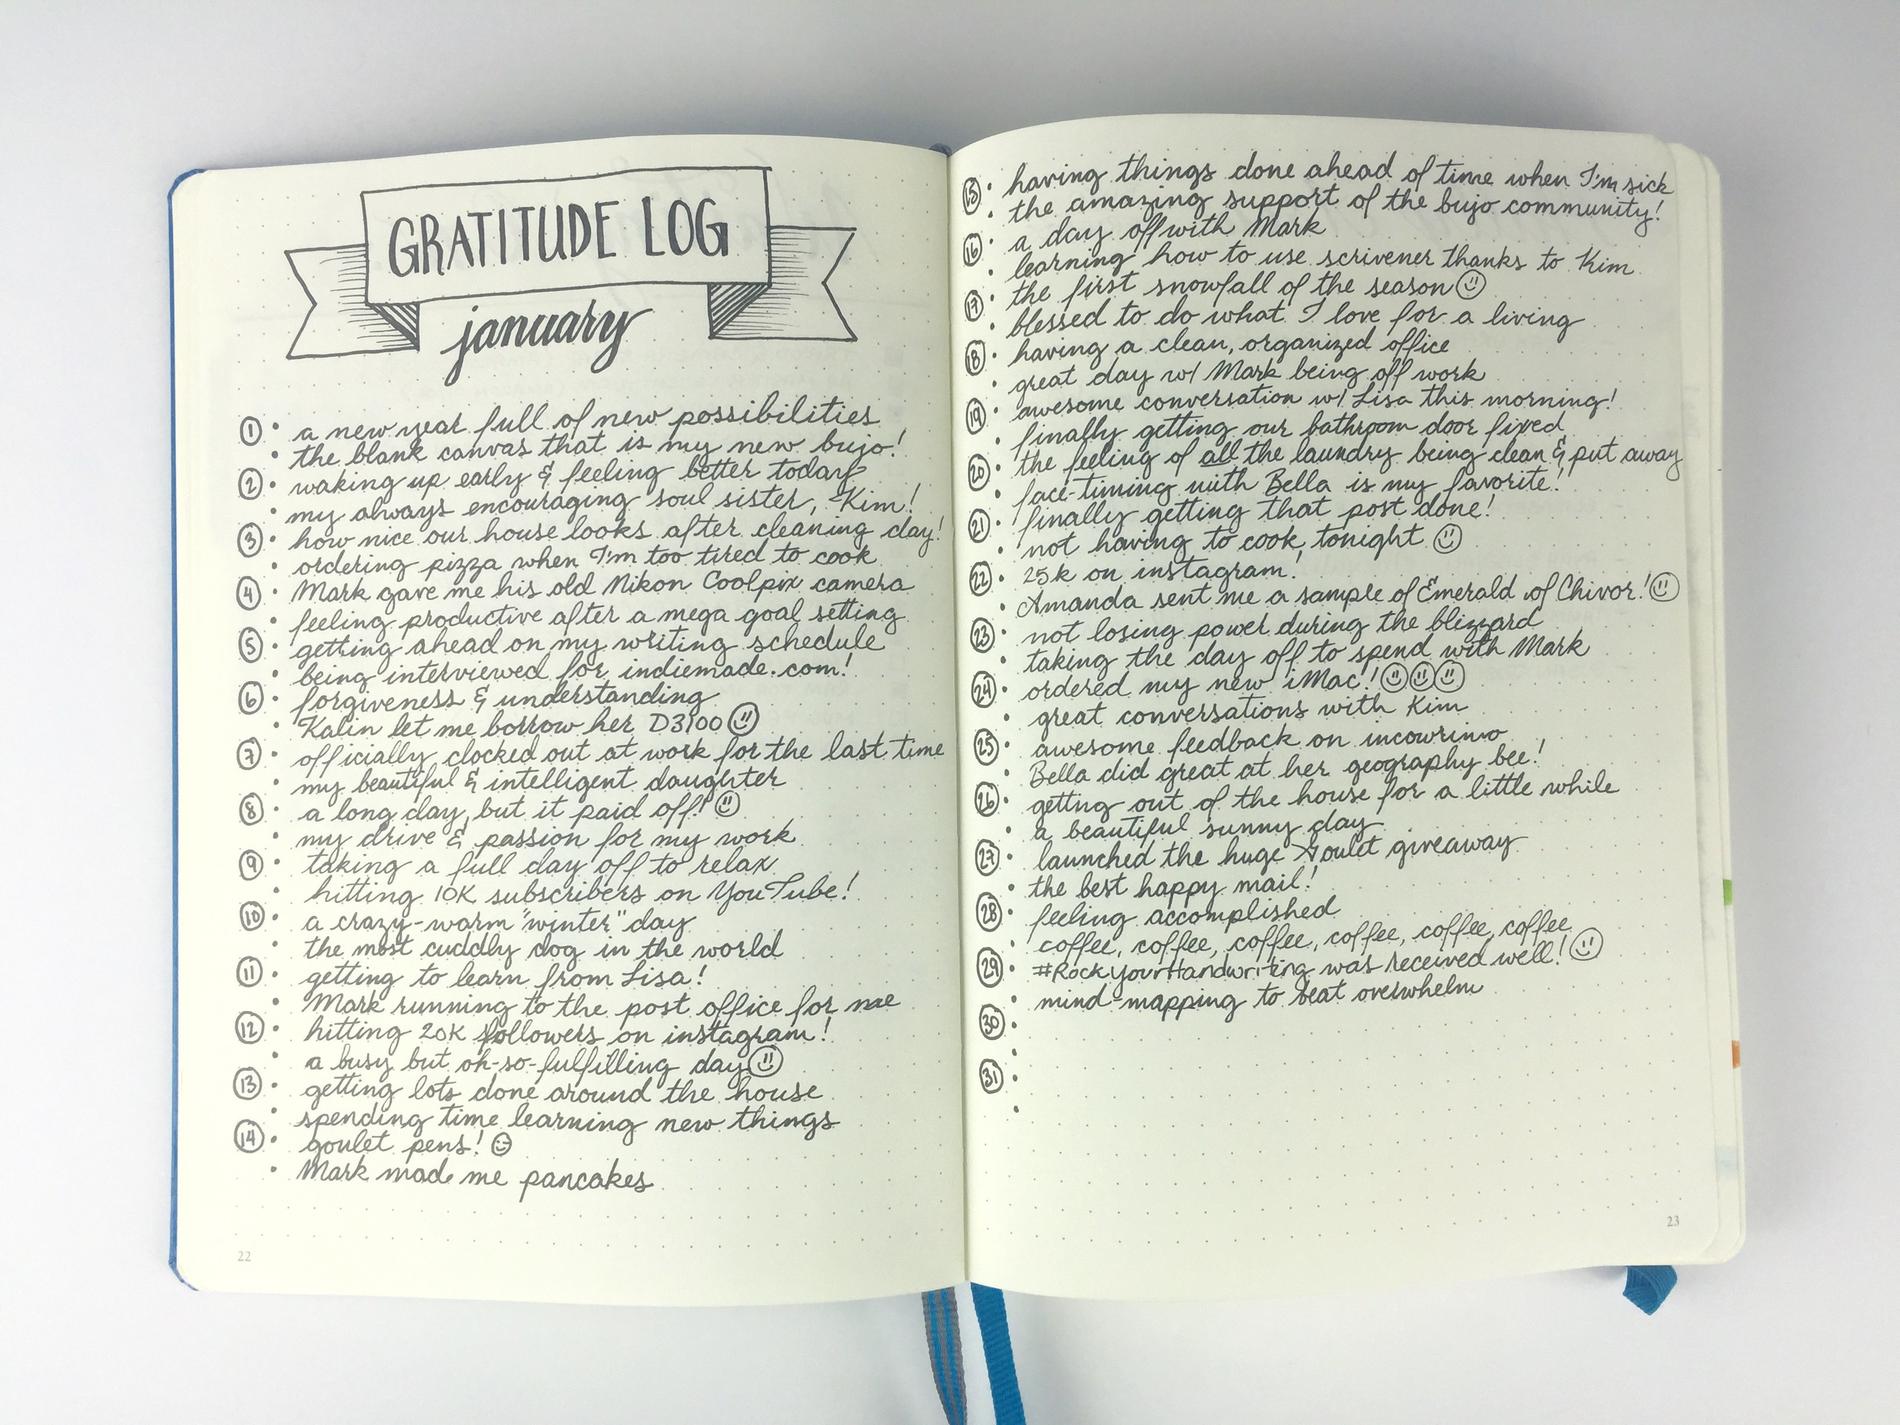 GRATITUDE LOG
january
① • a new year full of new possibilities
• the blank canvas that is my new bujo!
② • waking up early & feeling better today
• my always encouraging soul sister, Kim!
③ • how nice our house looks after cleaning day!
• ordering pizza when I'm too tired to cook
④ • Mark gave me his old Nikon Coolpix camera
• feeling productive after a mega goal setting
⑤ • getting ahead on my writing schedule
• being interviewed for indiemade.com!
⑥ • forgiveness & understanding
• Kalin let me borrow her D3100 ☺
⑦ • officially clocked out at work for the last time
• my beautiful & intelligent daughter
⑧ • a long day, but it paid off! ☺
• my drive & passion for my work
⑨ • taking a full day off to relax
• hitting 10K subscribers on YouTube!
⑩ • a crazy-warm "winter" day
• the most cuddly dog in the world
⑪ • getting to learn from Lisa!
• Mark running to the post office for me
⑫ • hitting 20K followers on instagram!
• a busy but oh-so-fulfilling day ☺
⑬ • getting lots done around the house
• spending time learning new things
⑭ • goulet pens! ☺
• Mark made me pancakes
22
⑮ • having things done ahead of time when I'm sick
• the amazing support of the bujo community!
⑯ • a day off with Mark
• learning how to use scrivener thanks to Kim
⑰ • the first snowfall of the season ☺
• blessed to do what I love for a living
⑱ • having a clean, organized office
• great day w/ Mark being off work
⑲ • awesome conversation w/ Lisa this morning!
• finally getting our bathroom door fixed
⑳ • the feeling of all the laundry being clean & put away
• face-timing with Bella is my favorite!
㉑ • finally getting that post done!
• not having to cook tonight ☺
㉒ • 25k on instagram!
• Amanda sent me a sample of Emerald of Chivor! ☺
㉓ • not losing power during the blizzard
• taking the day off to spend with Mark
㉔ • ordered my new iMac! ☺☺☺
• great conversations with Kim
㉕ • awesome feedback on incowrimo
• Bella did great at her geography bee!
㉖ • getting out of the house for a little while
• a beautiful sunny day
㉗ • launched the huge Goulet giveaway
• the best happy mail!
㉘ • feeling accomplished
• coffee, coffee, coffee, coffee, coffee, coffee
㉙ • #RockYourHandwriting was received well! ☺
• mind-mapping to beat overwhelm
㉚ •
•
㉛ •
•
23